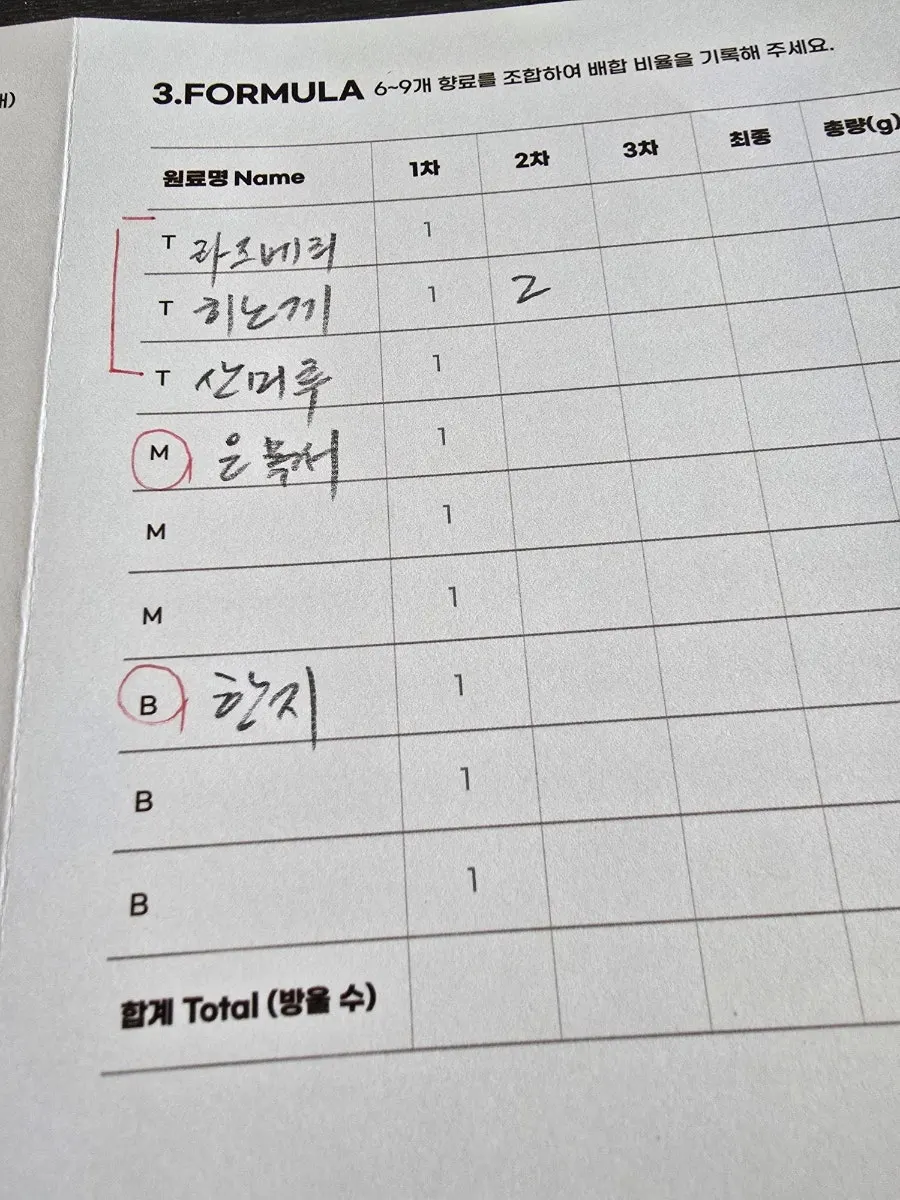 3.FORMULA 6~9개 향료를 조합하여 배합 비율을 기록해 주세요.
원료명 Name 1차 2차 3차 최종 총량(g)
T 라즈베리 1
T 히노끼 1 2
T 산머루 1
M 은목서 1
M 1
M 1
B 한지 1
B 1
B 1
합계 Total (방울 수)